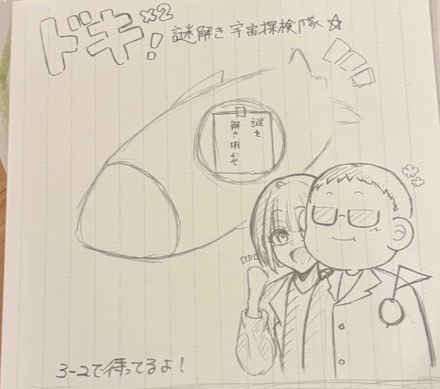 ドキ×2!
謎解き宇宙探検隊☆
謎を
解き明かせ
3-2で待ってるよ!